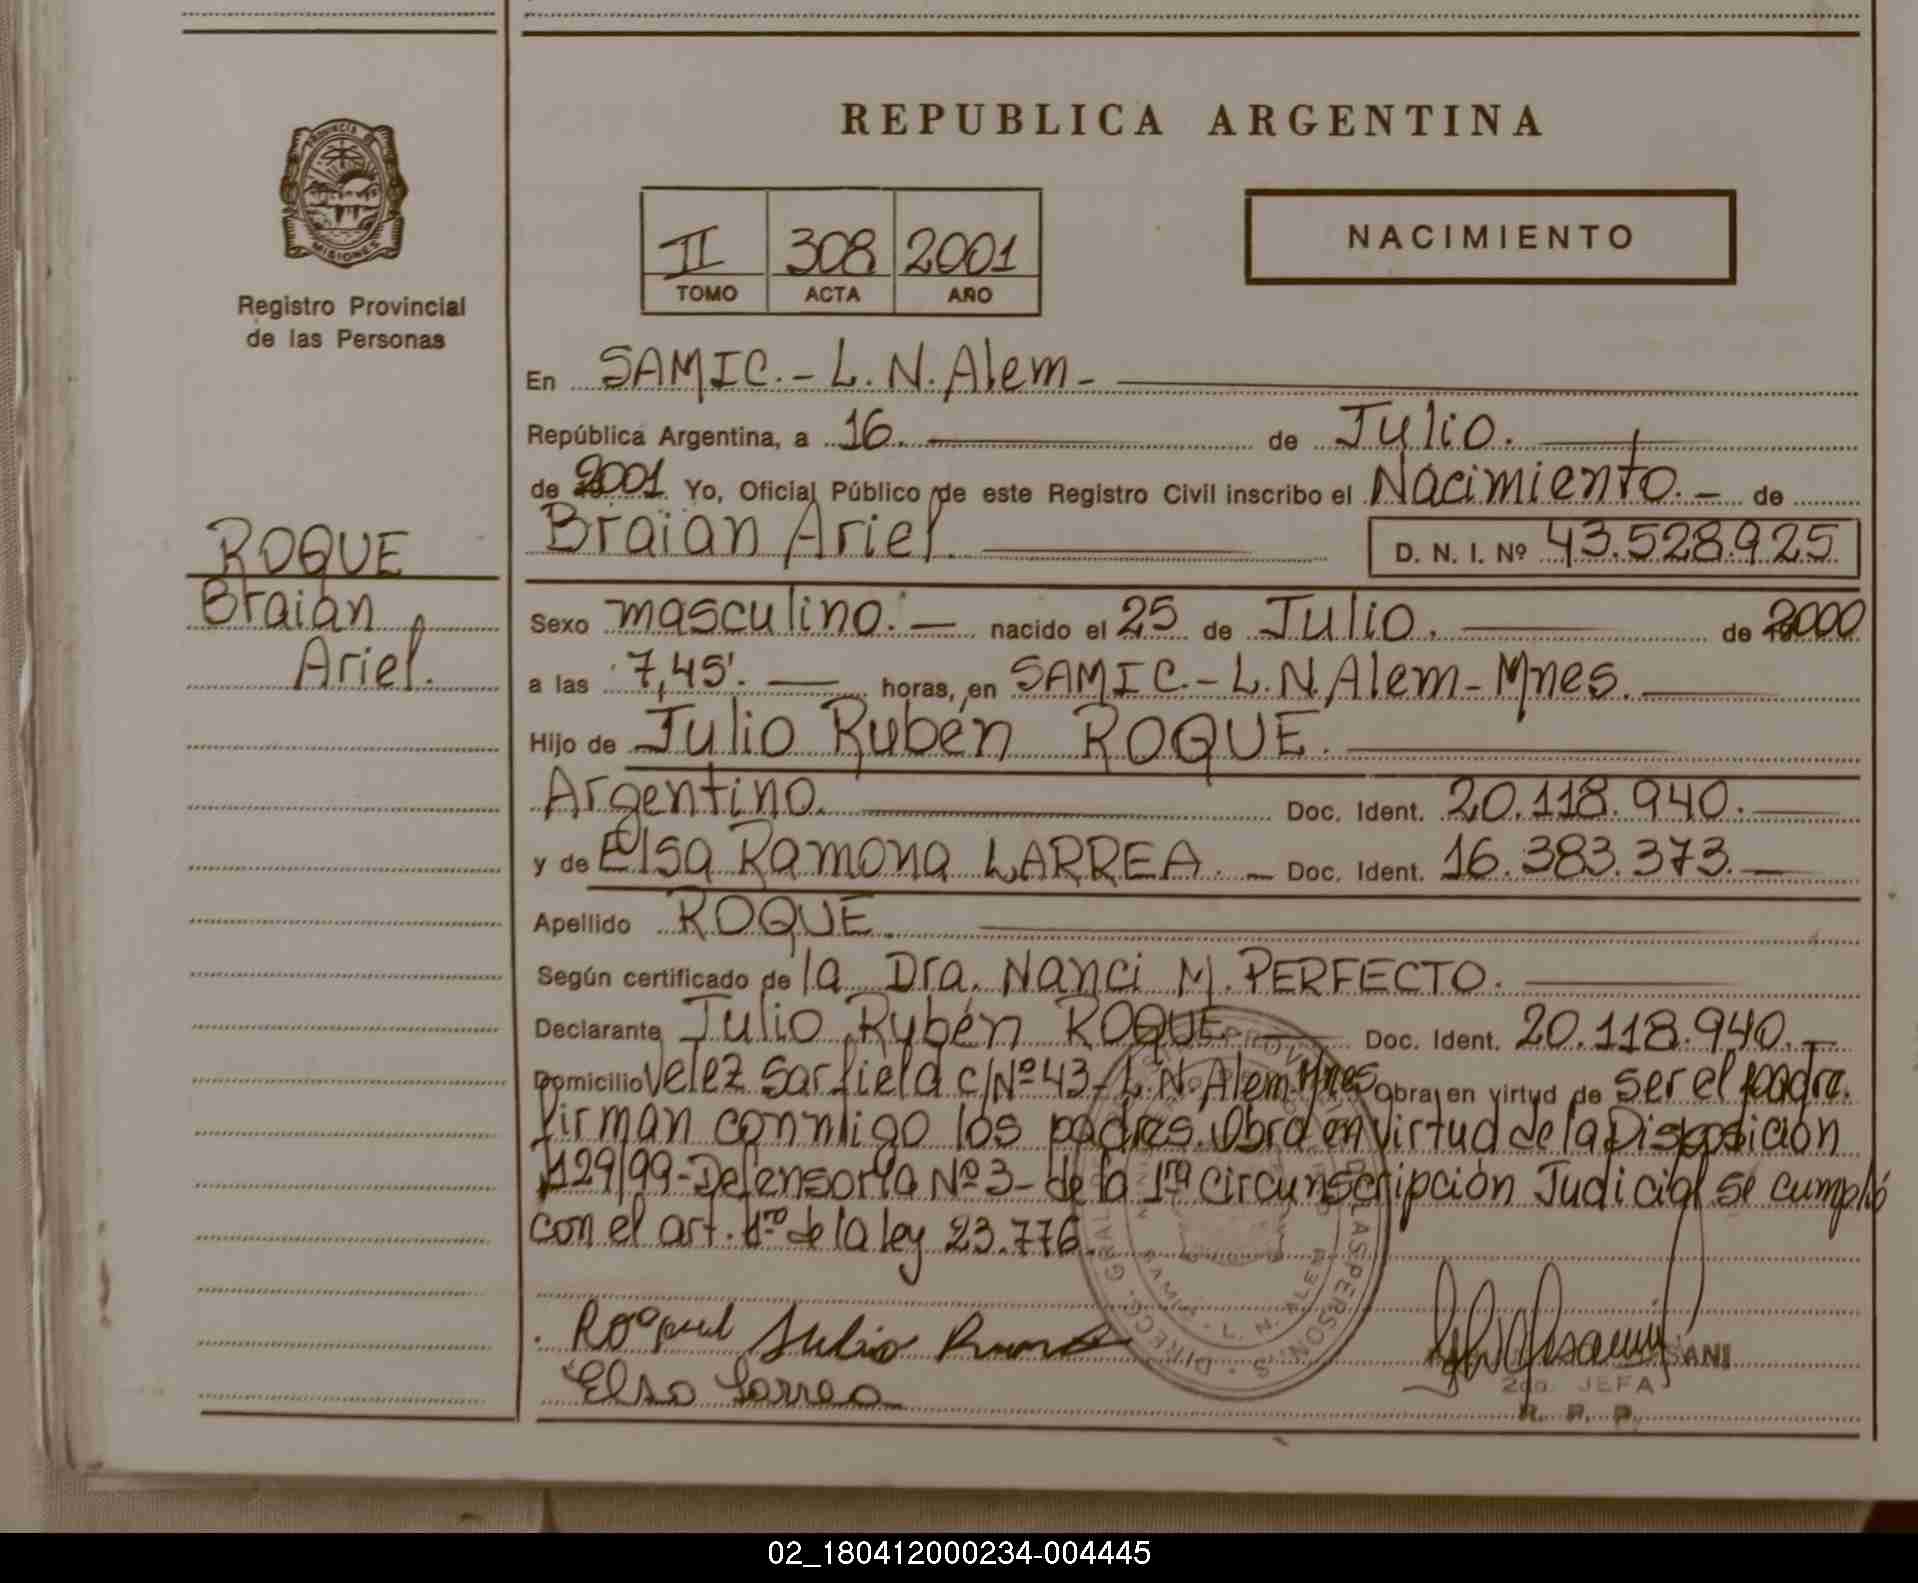 REPUBLICA ARGENTINA
PROVINCIA DE
MISIONES
Registro Provincial
de las Personas
II 308 2001
TOMO ACTA AÑO
NACIMIENTO
En SAMIC.- L.N.Alem-
República Argentina, a 16. de Julio.
de 2001. Yo, Oficial Público de este Registro Civil inscribo el Nacimiento.- de
Braian Ariel. D. N. I. Nº 43.528.925
ROQUE
Braian
Ariel.
Sexo masculino.- nacido el 25 de Julio. de 2000
a las 7,45'. horas, en SAMIC.- L.N.Alem-Mnes.
Hijo de Julio Rubén ROQUE.
Argentino. Doc. Ident. 20.118.940.-
y de Elsa Ramona LARREA.- Doc. Ident. 16.383.373.-
Apellido ROQUE.
Según certificado de la Dra. Nanci M. PERFECTO.
Declarante Julio Rubén ROQUE.- Doc. Ident. 20.118.940.-
Domicilio Velez Sarfield c/Nº 43-L.N.Alem-Mnes Obra en virtud de ser el padre.
firman conmigo los padres. Obra en virtud de la Disposición
129/99-Defensoría Nº 3- de la 1ra Circunscripción Judicial se cumplió
con el art. 1ro de la ley 23.776.
Julio
Elsa Larrea
SANI
2da. JEFA
R. P. P.
02_180412000234-004445